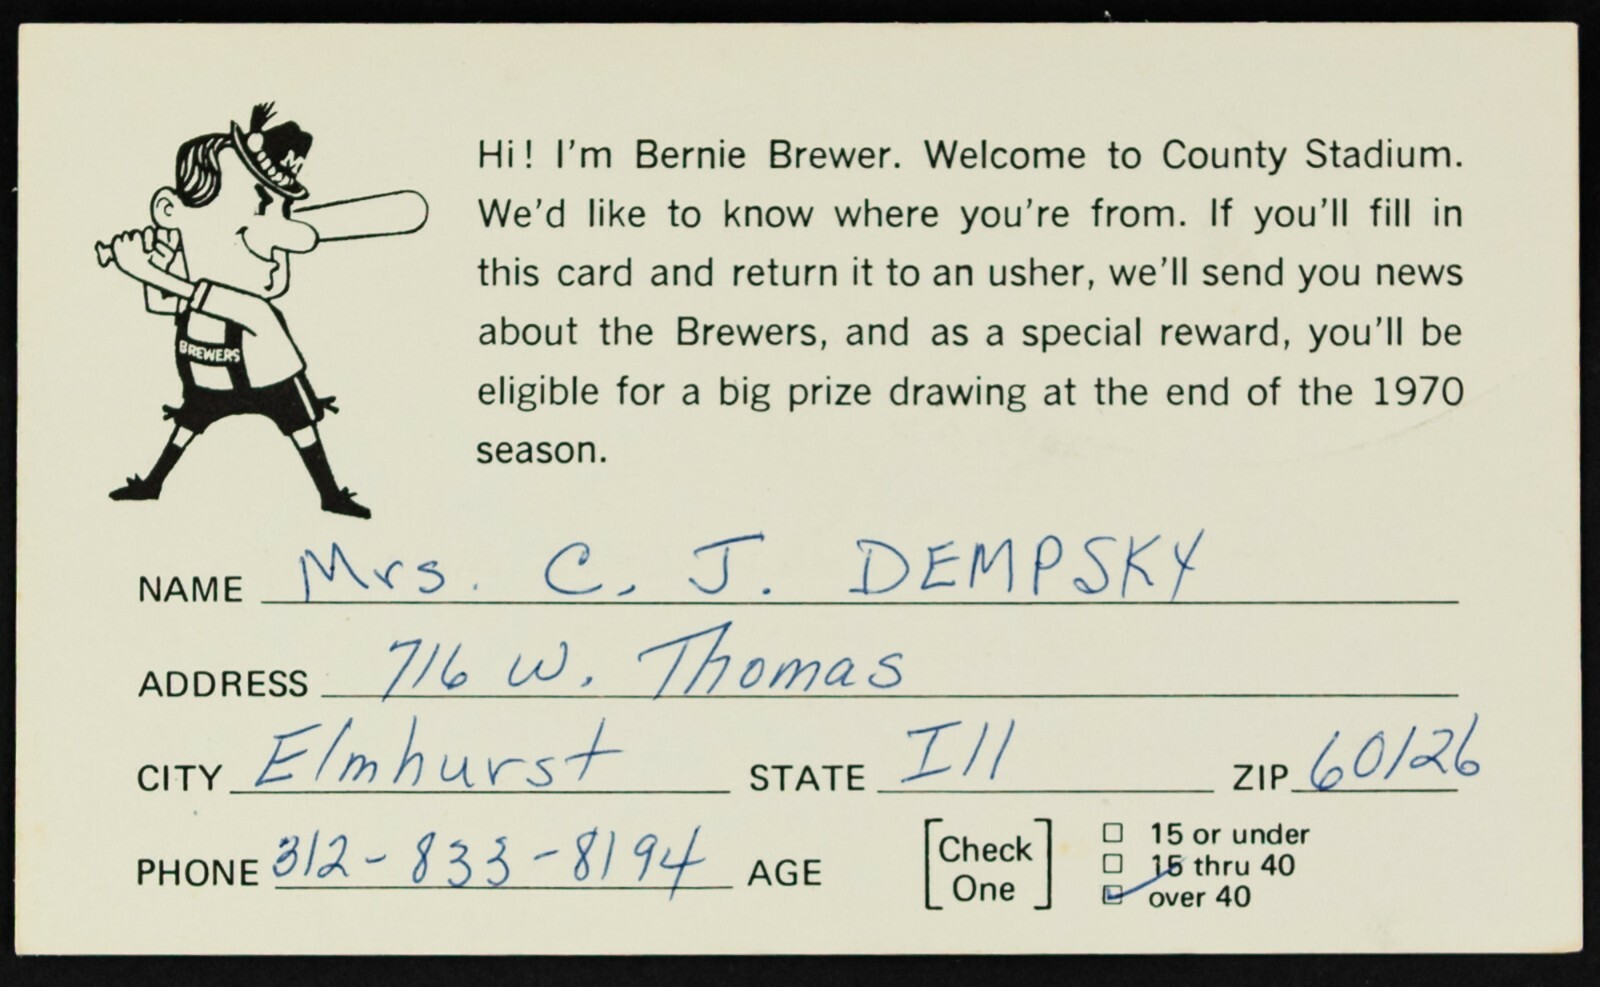 M
BREWERS
Hi! I'm Bernie Brewer. Welcome to County Stadium.
We'd like to know where you're from. If you'll fill in
this card and return it to an usher, we'll send you news
about the Brewers, and as a special reward, you'll be
eligible for a big prize drawing at the end of the 1970
season.
NAME Mrs. C. J. DEMPSKY
ADDRESS 716 W. Thomas
CITY Elmhurst STATE Ill ZIP 60126
PHONE 312-833-8194 AGE [Check One]
☐ 15 or under
☐ 15 thru 40
☑ over 40